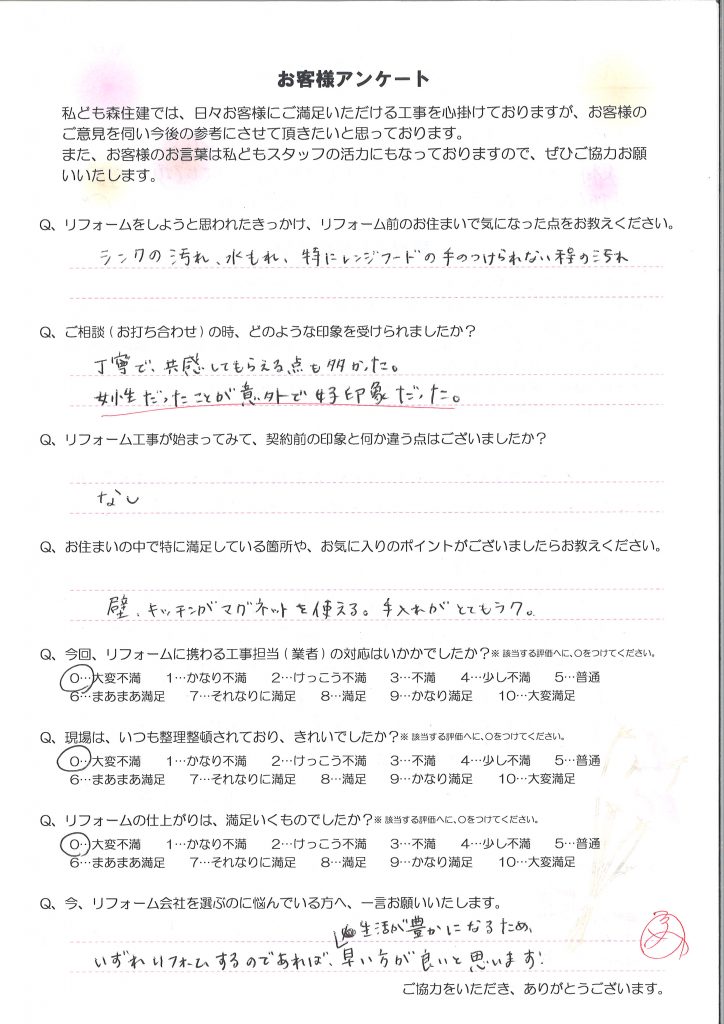 お客様アンケート
私ども森住建では、日々お客様にご満足いただける工事を心掛けておりますが、お客様の
ご意見を伺い今後の参考にさせて頂きたいと思っております。
また、お客様のお言葉は私どもスタッフの活力にもなっておりますので、ぜひご協力お願
いいたします。
Q、リフォームをしようと思われたきっかけ、リフォーム前のお住まいで気になった点をお教えください。
シンクの汚れ、水もれ、特にレンジフードの手のつけられない程の汚れ
Q、ご相談(お打ち合わせ)の時、どのような印象を受けられましたか?
丁寧で、共感してもらえる点も多かった。
女性だったことが意外で好印象だった。
Q、リフォーム工事が始まってみて、契約前の印象と何か違う点はございましたか?
なし
Q、お住まいの中で特に満足している箇所や、お気に入りのポイントがございましたらお教えください。
壁、キッチンがマグネットを使える。手入れがとてもラク。
Q、今回、リフォームに携わる工事担当(業者)の対応はいかかでしたか?※該当する評価へに、○をつけてください。
0…大変不満 1…かなり不満 2…けっこう不満 3…不満 4…少し不満 5…普通
6…まあまあ満足 7…それなりに満足 8…満足 9…かなり満足 10…大変満足
Q、現場は、いつも整理整頓されており、きれいでしたか?※該当する評価へに、○をつけてください。
0…大変不満 1…かなり不満 2…けっこう不満 3…不満 4…少し不満 5…普通
6…まあまあ満足 7…それなりに満足 8…満足 9…かなり満足 10…大変満足
Q、リフォームの仕上がりは、満足いくものでしたか?※該当する評価へに、○をつけてください。
0…大変不満 1…かなり不満 2…けっこう不満 3…不満 4…少し不満 5…普通
6…まあまあ満足 7…それなりに満足 8…満足 9…かなり満足 10…大変満足
Q、今、リフォーム会社を選ぶのに悩んでいる方へ、一言お願いいたします。
生活が豊かになるため、
いずれリフォームするのであれば、早い方が良いと思います!
ご協力をいただき、ありがとうございます。